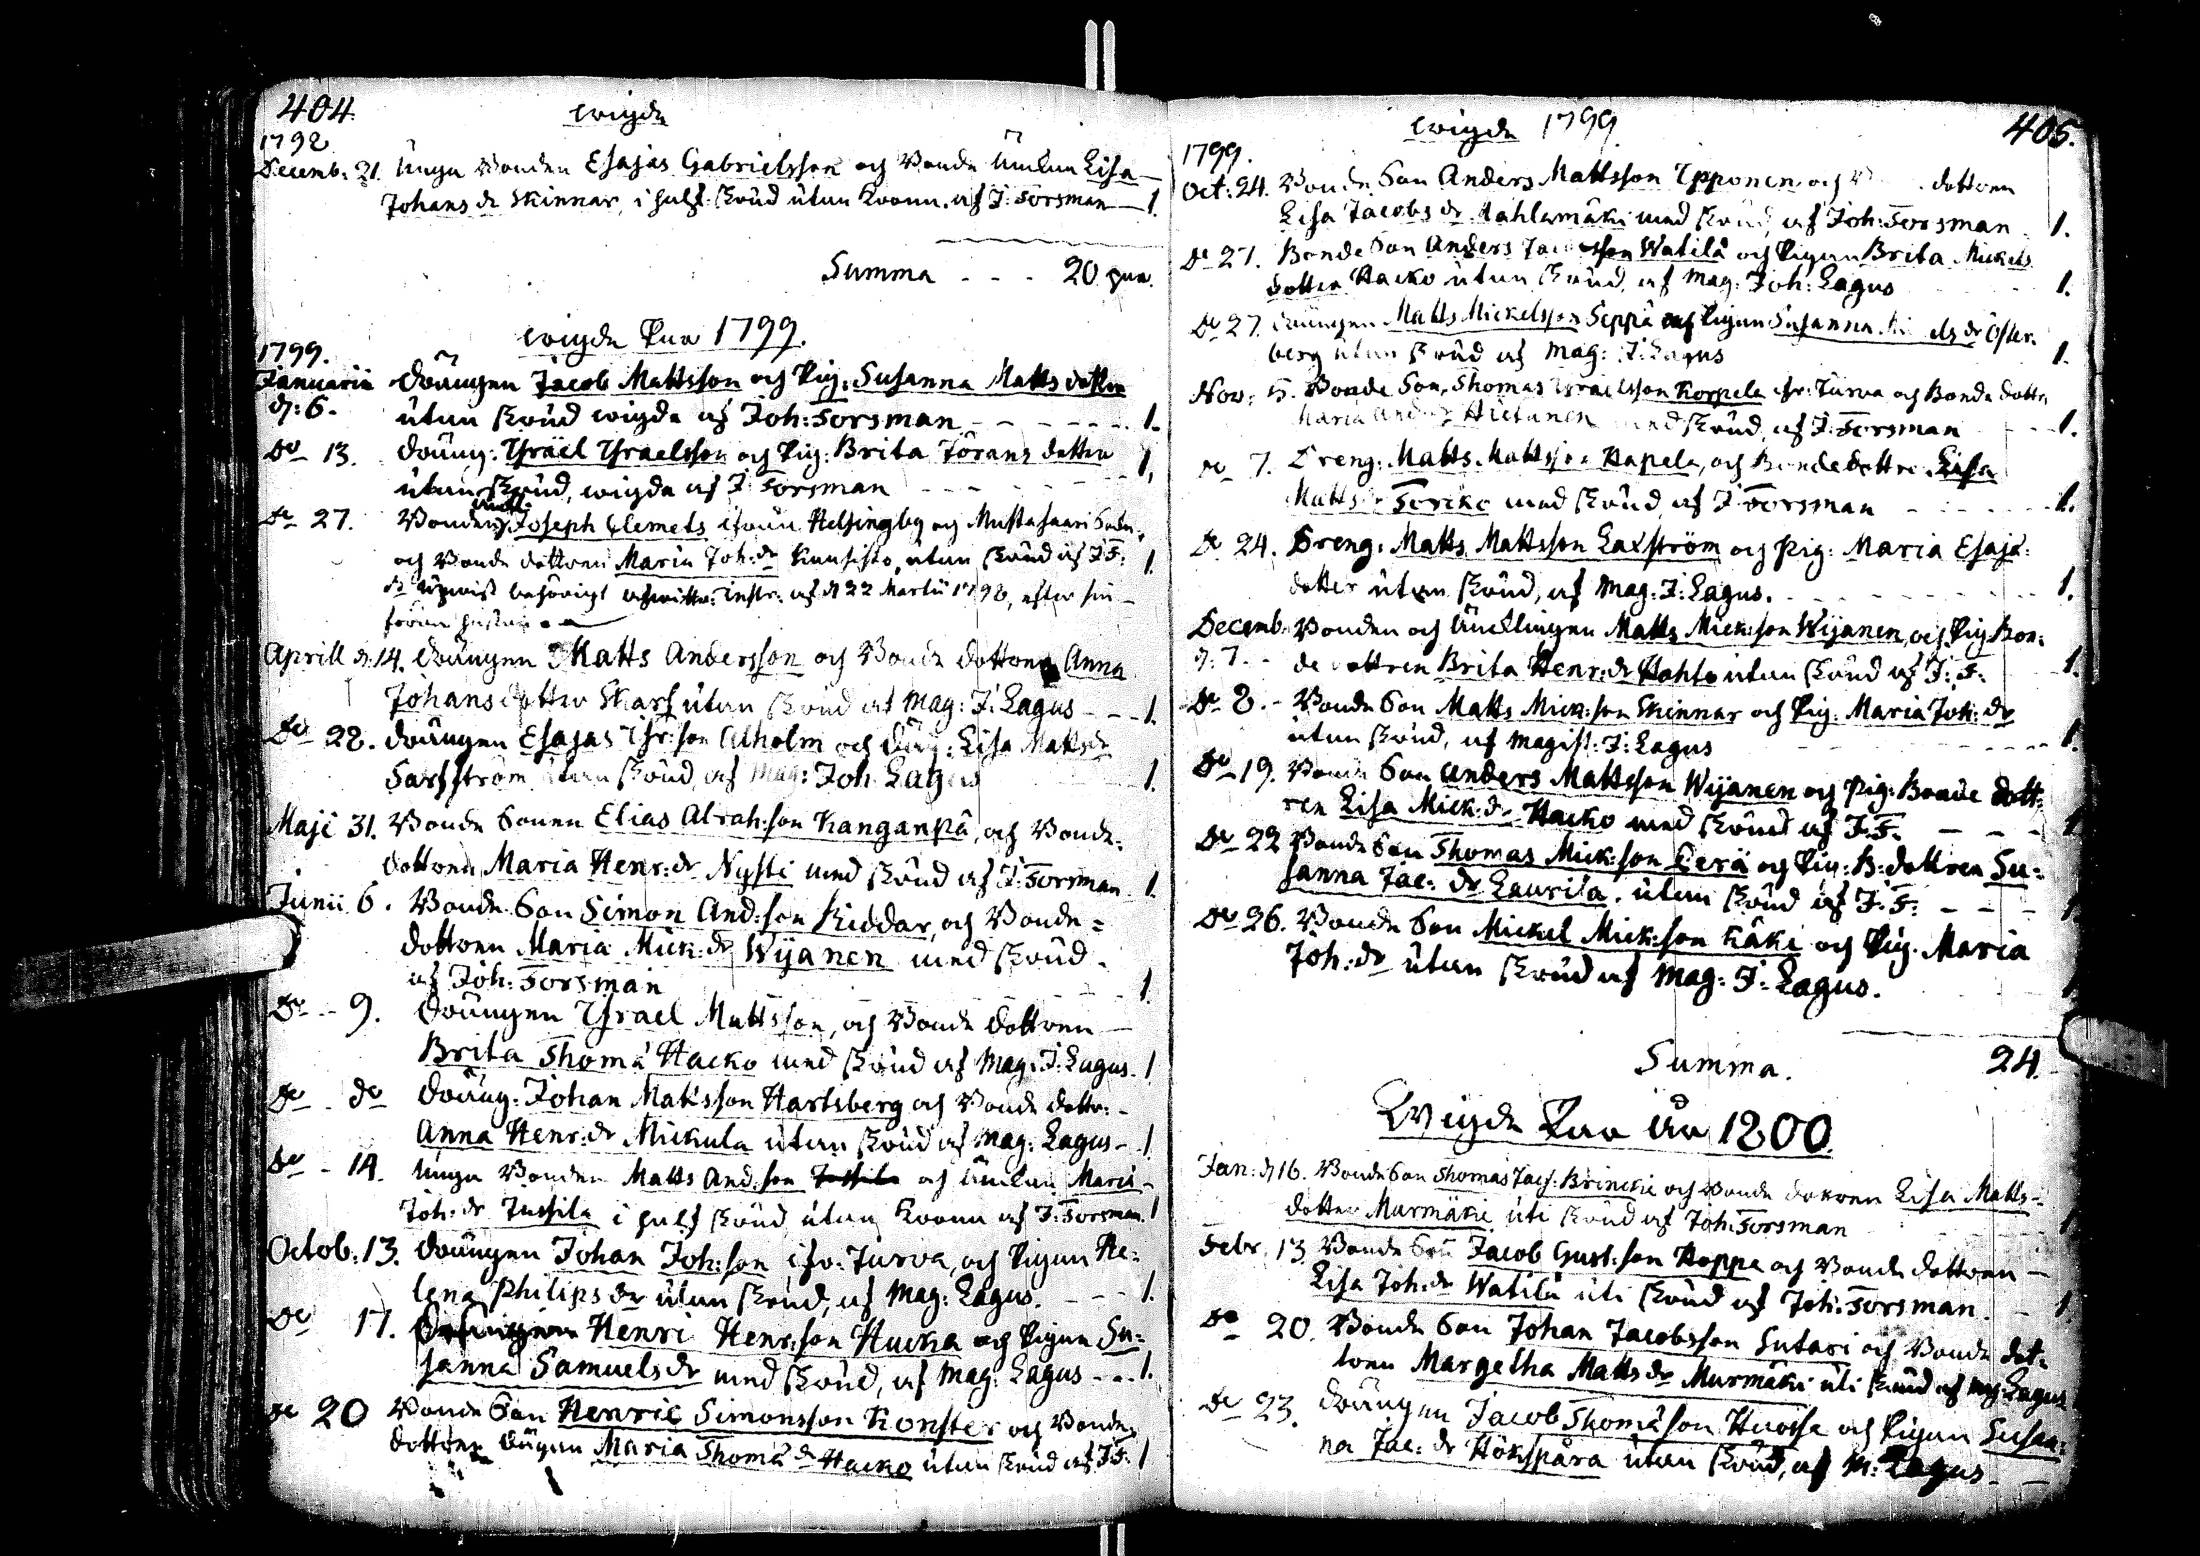 404.
wigde
1798
Decemb: 21. Unga Bonden Esajas Gabrielsson och Bonde Änkan Lisa
Johans dr Skinnar, i half skrud utan krona. af J: Forsman 1.
Summa - - - 20 par.
wigde Par 1799.
1799.
Januarii Drängen Jacob Mattsson och Pig: Susanna Matts dotter
d: 6. utan skrud wigde af Joh: Forsman - - - - - 1.
Do 13. Dräng: Israël Israelsson och Pig: Brita Jörans dotter 1.
utan skrud, wigda af J Forsman
Do 27. Joseph Clemets ifrån Helsingby og Mustasaari Sokn,
och Bonde dottren Maria Joh: dr Kunsisto, utan skrud af J F: 1.
behörigt af d 22 Martii 1798, efter sin
Aprill d: 14. Drängen Matts Andersson och Bonde dottren Anna
Johans dotter Skarf utan skrud af Mag: J: Lagus - - 1.
Do 28. Drängen Esajas Isr: son Alholm och Lisa Matts dr
Sarfström utan skrud af Mag: Joh Lagus 1.
Maji 31. Bonde Sonen Elias Abrah: son Kanganpä, och Bonde
dottren Maria Henr: dr Nysti med skrud af J: Forsman 1.
Junii 6. Bonde Son Simon And: son Riddar, och Bonde=
dottren Maria Mick: dr Wijanen med skrud
af Joh: Forsman 1.
Do - - 9. Drängen Israel Mattsson, och Bonde dottren
Brita Thoma Hacko med skrud af Mag: J: Lagus. 1
Do do Dräng: Johan Matsson Hartsberg och Bonde dottr:
Anna Henr: dr Mickula utan skrud af Mag: Lagus - 1
Do - 14. Unga Bonden Matts And: son Jussila och Änkan Maria
Joh: dr Jussila i half skrud utan krona af J: Forsman. 1
Octob: 13. Drängen Johan Joh: son ifr: Jurva, och Pigan He=
lena Philips dr utan skrud, af Mag: Lagus. - - - 1.
Do 17. Henri Henr: son Hucka och Pigan Su=
sanna Samuels dr med skrud, af Mag: Lagus - - 1.
Do 20 Bonde Son Henric Simonsson Konster och Bonde
dottren Pigan Maria Thoma dr Hacko utan skrud af J F: 1
405.
wigde 1799
1799.
Oct: 24. Bonde Son Anders Mattsson Ypponen och dottren
Lisa Jacobs dr Kahlamäki med skrud, af Joh: Forsman 1.
Do 27. Bonde Son Anders Jacobsson Watila och Pigan Brita Mickels
dotter Hacko utan skrud, af Mag: Joh: Lagus 1.
Do 27. Drängen Matts Mickelsson Seppä och Pigan Susanna dr Öster=
berg utan skrud af Mag: J: Lagus 1.
Nov: 5. Bonde Son Thomas Israelsson Korpela ifr: Jurva och Bonde dottr
Maria Anders Hietanen med skrud, af J: Forsman - - 1.
Do 7. Dreng: Matts Mattsson Kapela, och Bonde dottre Lisa
Matts dr med skrud, af J Forsman - - - - 1.
Do 24. Dreng: Matts Mattsson Laxström och Pig: Maria Esaja:
dotter utan skrud, af Mag: J: Lagus. - - - - - - 1.
Decemb: Bonden och Äncklingen Matts Mick: son Wijanen, och Pig Bon=
d: 7. - de dottren Brita Henr: dr Hohto utan skrud af J: F: 1.
Do 8. - Bonde Son Matts Mick: son Skinnar och Pig: Maria Joh: dr
utan skrud, af Magist: J: Lagus - - - - 1.
Do 19. Bonde Son Anders Mattsson Wijanen och Pig: Bonde dott=
ren Lisa Mick: dr Hacko med skrud af J. F. - - - 1
Do 22 Bonde Son Thomas Mick: son Perä og Pig: B: dottren Su=
sanna Jac: dr Laurila, utan skrud af J: F: - - - 1
Do 26. Bonde Son Mickel Mick: son Käki och Pig. Maria
Joh: dr utan skrud af Mag: J: Lagus. 1
Summa. 24.
Wigde Par år 1800.
Jan: d 16. Bonde Son Thomas Jacs: Brincki och Bonde dottren Lisa Matts=
dotter Murmäki uti skrud af Joh: Forsman 1
Febr. 13 Bonde Son Jacob Gust: son Hoppa och Bonde dottren
Lisa Joh: dr Watila uti skrud af Joh: Forsman. - 1.
Do 20. Bonde Son Johan Jacobsson Sutari och Bonde dot=
tren Margetha Matts dr Murmäki uti skrud af Mag: Lagus
Do 23. Drängen Jacob Thomasson Huosse och Pigan Susan=
na Jac: dr Hökspåra utan skrud, af M: Lagus -